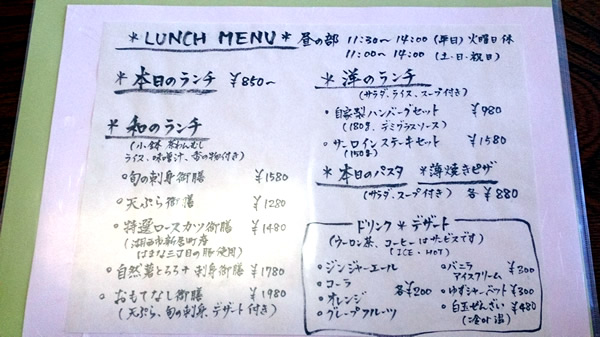 *LUNCH MENU* 昼の部 11:30〜14:00 (平日) 火曜日休
11:00〜14:00 (土・日・祝日)
*本日のランチ ¥850〜
*和のランチ
(小鉢 茶わんむし
ライス、味噌汁、香の物付き)
・旬の刺身御膳 ¥1580
・天ぷら御膳 ¥1280
・特選ロースカツ御膳 ¥1480
(湖西市新居町産
はまな三丁目の豚使用)
・自然薯とろろ+刺身御膳 ¥1780
・おもてなし御膳 ¥1980
(天ぷら、旬の刺身、デザート付き)
*洋のランチ
(サラダ、ライス、スープ付き)
・自家製ハンバーグセット ¥980
(180g、デミグラスソース)
・サーロインステーキセット ¥1580
(150g)
*本日のパスタ *薄焼きピザ
(サラダ、スープ付き) 各¥880
ドリンク*デザート
(ウーロン茶、コーヒーはサービスです)
(ICE・HOT)
・ジンジャーエール
・コーラ 各¥200
・オレンジ
・グレープフルーツ
・バニラ
アイスクリーム ¥300
・ゆずシャーベット ¥300
・白玉ぜんざい ¥480
(冷or温)